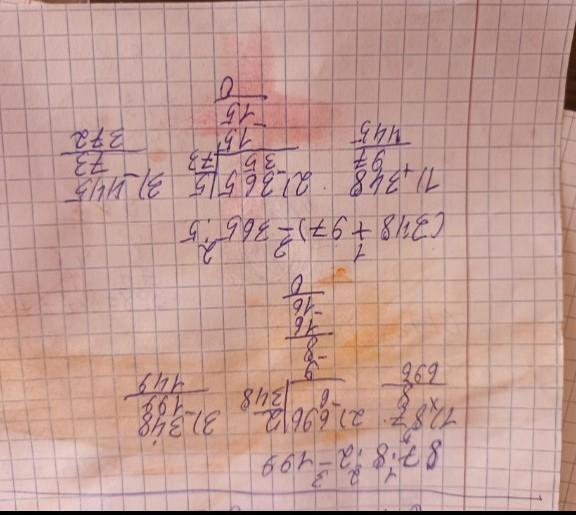 1 2 3
87·8:2-199
1) 87 2) 696|2 3) 348
× 8 - 6 |348 - 199
696 9 149
- 8
16
- 16
0
1 3 2
(348 + 97) - 365 : 5
1) 348 2) 365|5 3) 445
+ 97 - 35 |73 - 73
445 15 372
- 15
0